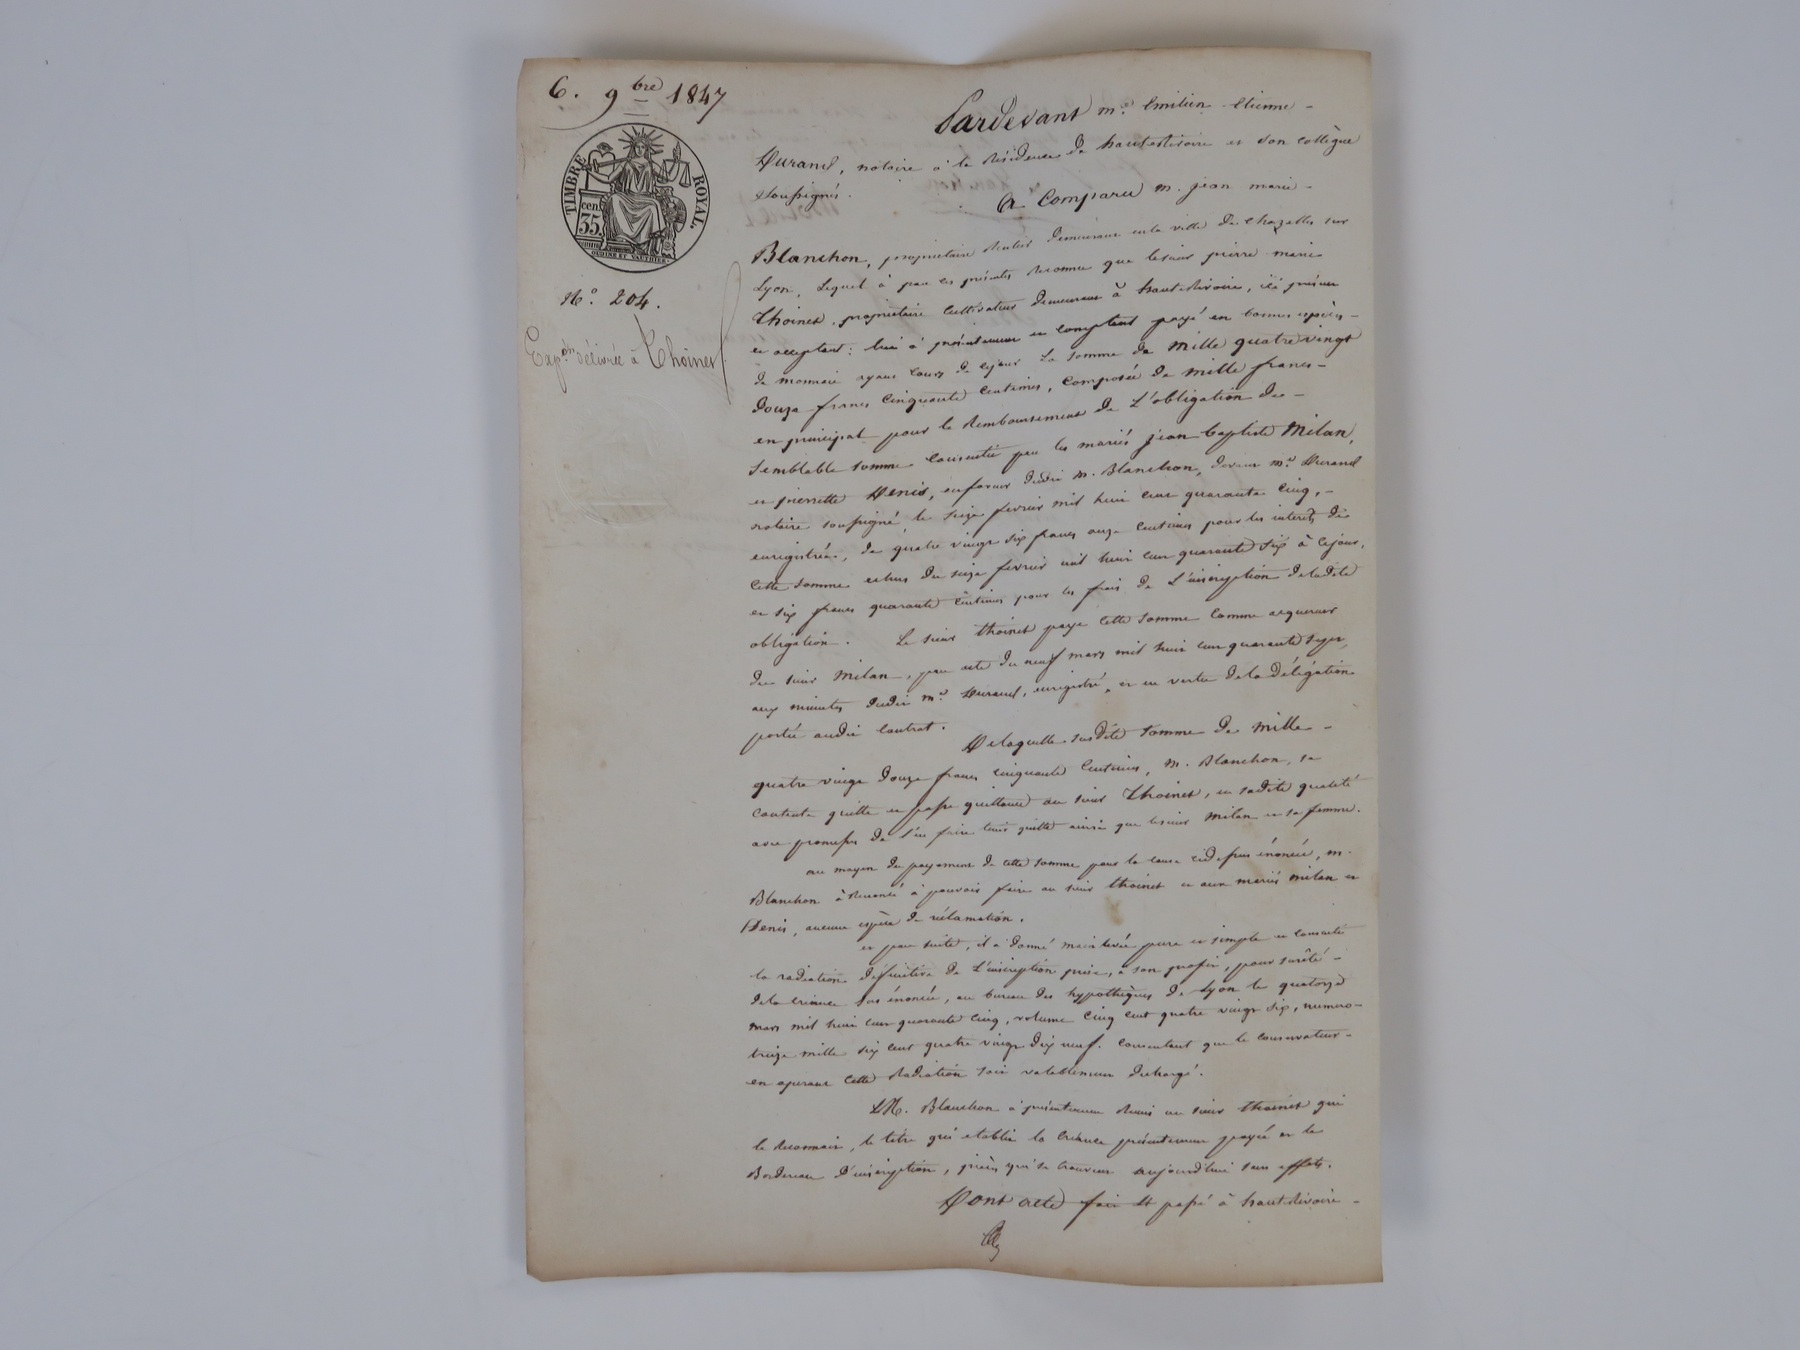 6. 9bre 1847
TIMBRE ROYAL.
cen. 35.
N.o 204.
Expon délivrée à Thoinet
Pardevant me. Emilien Etienne -
Durand, notaire à la Résidence de hauterivoire et son collègue
Soussignés.
A Comparu m. jean marie -
Blanchon, propriétaire Rentier demeurant en la ville de Chazelles sur
Lyon, Lequel à par ces présentes Reconnu que lesieur pierre marie
Thoinet, propriétaire Cultivateur demeurant à hauterivoire, ici présent
et acceptant: lui à présentement et comptant payé en bonnes espèces -
de monnaie ayant cours de cejour La somme de mille quatre vingt
douze francs cinquante centimes, Composée de mille francs -
en principal pour le Remboursement de L'obligation de -
Semblable somme consentie par les mariés jean baptiste Milan,
et pierrette Denis, enfaveur dudit M. Blanchon, devant me. Durand
notaire soussigné, le seize fevrier mil huit cent quarante cinq, -
enregistrée, de quatre vingt six francs onze centimes pour les interets de
Cette somme echus du seize fevrier mil huit cent quarante six à cejour,
et six francs quarante centimes pour les frais de L'inscription deladite
obligation. Le sieur Thoinet paye cette somme comme acquereur
du sieur Milan, par acte du neuf mars mil huit cent quarante sept,
aux minutes dudit me. Durand, enregistré, et en vertu dela délégation
portée audit Contrat.
Delaquelle susdite somme de mille -
quatre vingt douze francs cinquante Centimes, M. Blanchon, se
contente quitte et passe quittance au sieur Thoinet, en sadite qualité
avec promesse de l'en faire tenir quitte ainsi que lesieur Milan et sa femme.
au moyen du payement de cette somme pour la cause cidessus énoncée, m.
Blanchon à Renoncé à pouvoir faire au sieur thoinet et aux mariés milan et
Denis, aucune espèce de réclamation.
et par suite, il a donné mainlevée pure et simple et consenti
la radiation définitive de L'inscription prise, à son profit, pour sûreté -
dela Créance sus énoncée, au bureau des hypothèques de Lyon le quatorze
mars mil huit cent quarante cinq, volume Cinq cent quatre vingt six, numero -
treize mille six cent quatre vingt dix neuf. Consentant que le conservateur -
en operant cette Radiation soit valablement dechargé.
M. Blanchon à présentement Remis au sieur thoinet qui
le Reconnait, le titre qui etablit la Créance présentement payée et le
Bordereau D'inscription, pièces qui se trouvent aujourd'hui sans effets.
Dont acte fait et passé à hauterivoire -